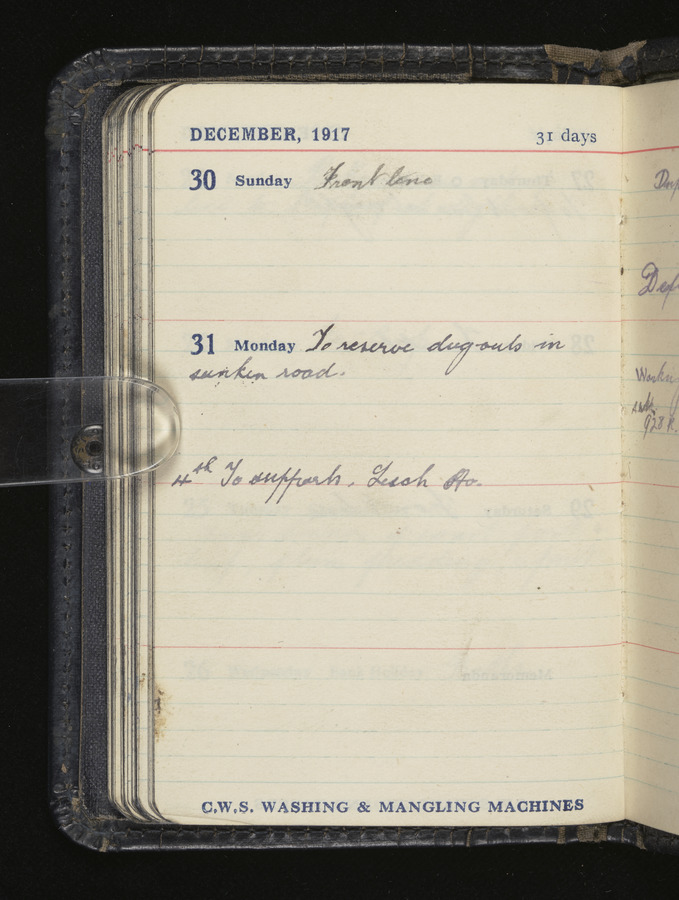 DECEMBER, 1917 31 days
30 Sunday Front line
31 Monday To reserve dug-outs in
sunken road.
4th To supports. Lesch Ho.
C.W.S. WASHING & MANGLING MACHINES
Dep